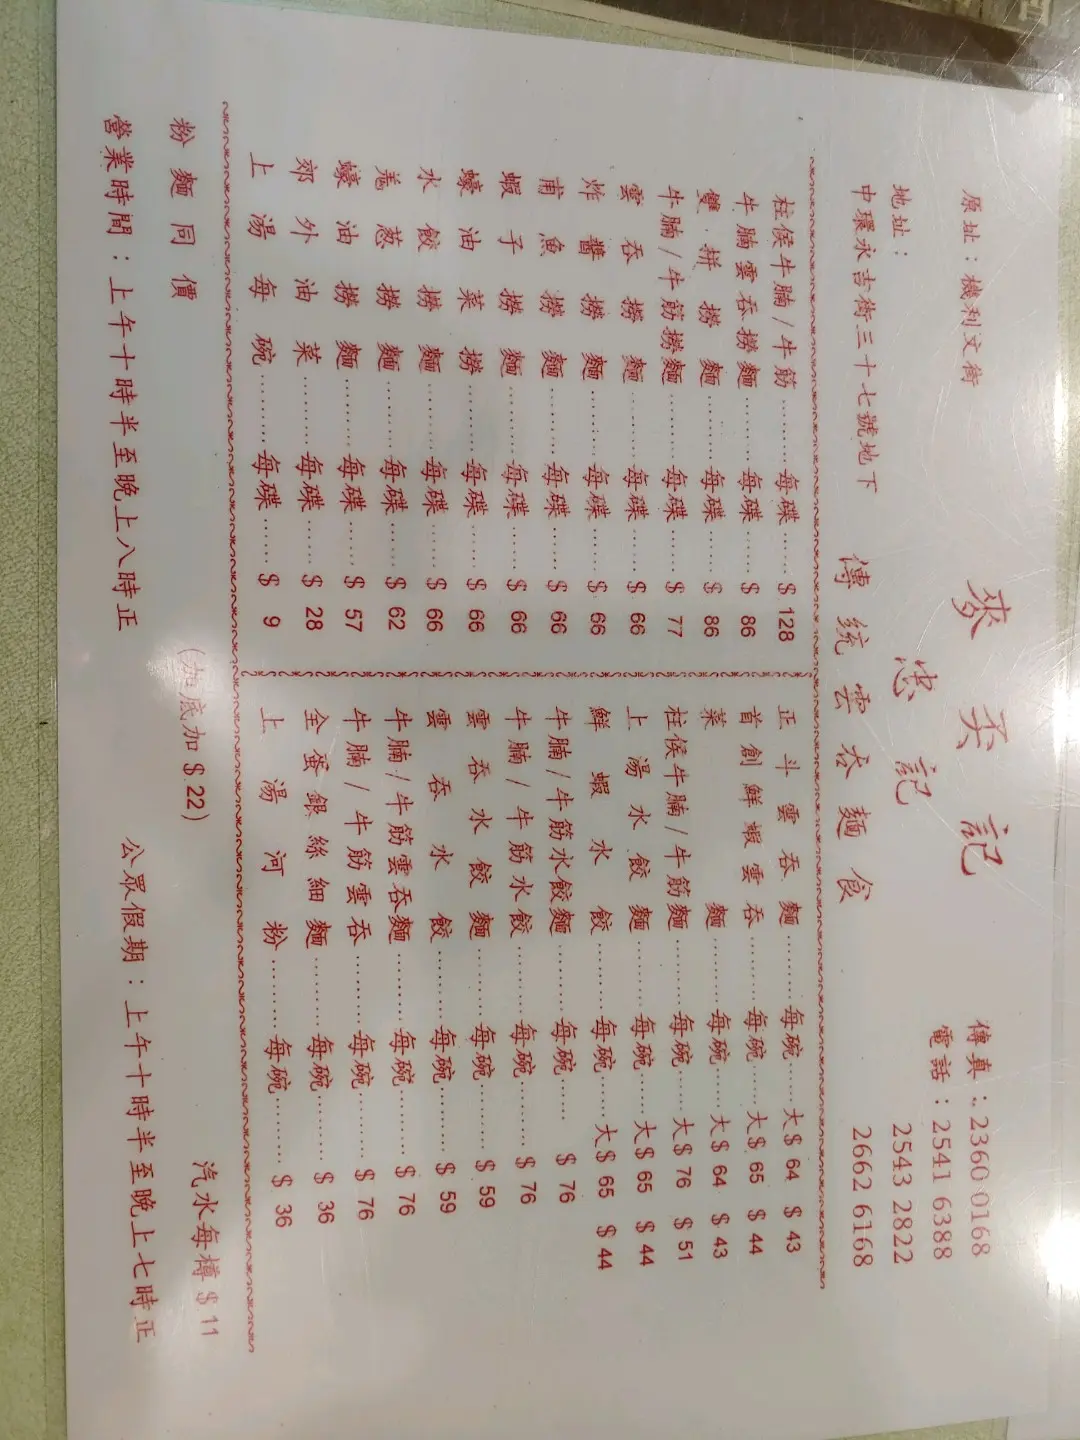 麥奀記
忠記
傳統雲吞麵食
原址：機利文街
地址：
中環永吉街三十七號地下
傳真：2360 0168
電話：2541 6388
2543 2822
2662 6168
柱侯牛腩/牛筋………每碟……$ 128
牛腩雲吞撈麵………每碟……$ 86
雙拼撈麵………每碟……$ 86
牛腩/牛筋撈麵………每碟……$ 77
雲吞撈麵………每碟……$ 66
炸醬撈麵………每碟……$ 66
甫魚撈麵………每碟……$ 66
蝦子撈麵………每碟……$ 66
蠔油菜撈………每碟……$ 66
水餃撈麵………每碟……$ 66
羗葱撈麵………每碟……$ 62
蠔油撈麵………每碟……$ 57
郊外油菜………每碟……$ 28
上湯每碗………每碟……$ 9
正斗雲吞麵………每碗……大$ 64 $ 43
首創鮮蝦雲吞………每碗……大$ 65 $ 44
菜麵………每碗……大$ 64 $ 43
柱侯牛腩/牛筋麵………每碗……大$ 76 $ 51
上湯水餃麵………每碗……大$ 65 $ 44
鮮蝦水餃………每碗……大$ 65 $ 44
牛腩/牛筋水餃麵………每碗……$ 76
牛腩/牛筋水餃………每碗……$ 76
雲吞水餃麵………每碗……$ 59
雲吞水餃………每碗……$ 59
牛腩/牛筋雲吞麵………每碗……$ 76
牛腩/牛筋雲吞………每碗……$ 76
全蛋銀絲細麵………每碗……$ 36
上湯河粉………每碗……$ 36
粉麵同價
(加底加 $ 22)
汽水每樽 $ 11
營業時間：上午十時半至晚上八時正
公眾假期：上午十時半至晚上七時正